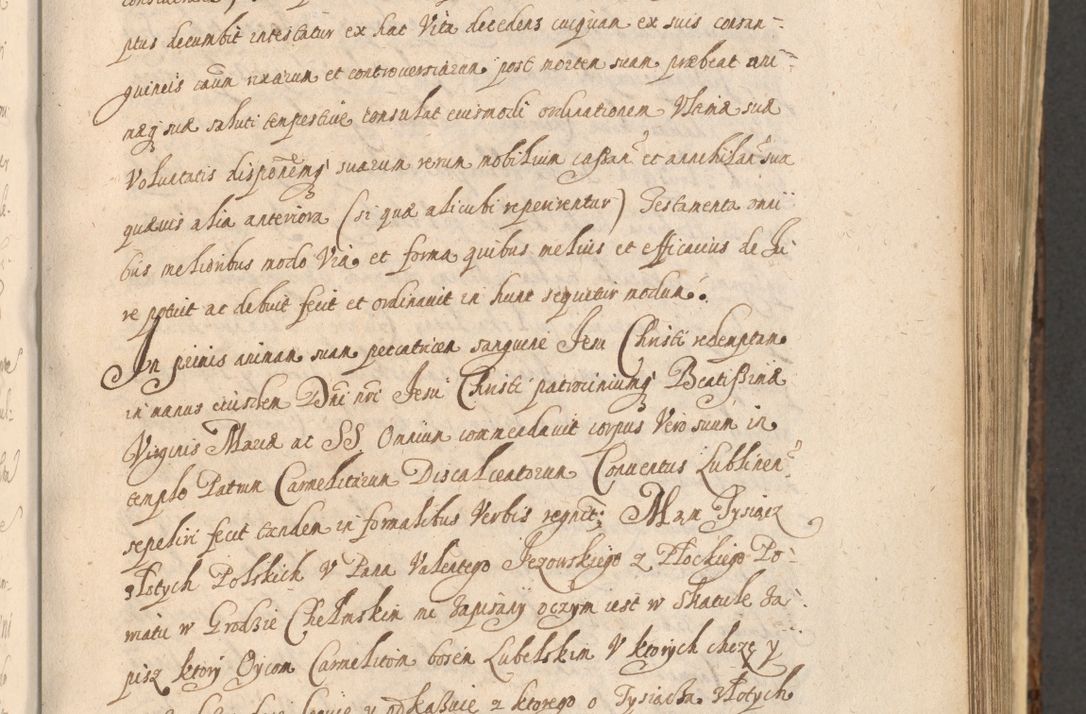 ptus decumbit intestatur ex hac Vita decedens cuiquam ex suis consan-
guineis caūm rixarum et controversiarum post mortem suam præbeat ani-
mæq; suæ saluti tempestive consulat eiusmodi ordinationem Vltimæ suæ
Voluntatis disponēmq; suarum rerum mobilium cassan: et annihilan: sua
quævis alia anteriora (si quæ alicubi reperirentur) Testamenta omni
bus melioribus modo Via et forma quibus melius et efficacius de Ju
re potuit ac debuit fecit et ordinavit in hunc sequitur modum.
In primis animam suam peccatricem sanguine Jesu Christi redemptam
in manus eiusdem Dni nri Jesu Christi patrociniumq; Beatissimæ
Virginis Mariæ ac SS Omnium commendavit corpus Vero suum in
templo Patrum Carmelitarum Discalceatorum Conventus Lublinen:
sepeliri fecit tandem in formalibus Verbis regnit: Mam Tysiącz
złotych Polskich V Pana Valentego Jezowskiego z Płockiego Po-
wiatu w Grodzie Chełmskim mi zapisany oczym iest w Skatule Za
pisz ktory Oycom Carmelitom bosem Lubelskim V ktorych chczę y
ktorego o Tysiącza złotych